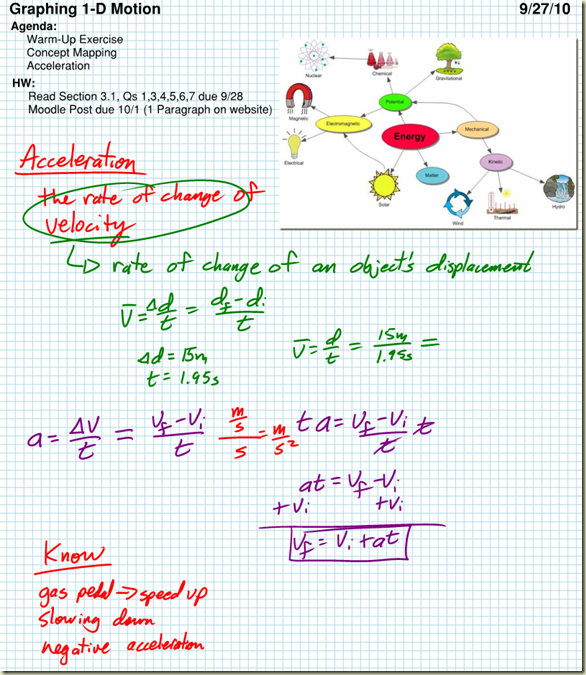 Graphing 1-D Motion 9/27/10
Agenda:
Warm-Up Exercise
Concept Mapping
Acceleration
HW:
Read Section 3.1, Qs 1,3,4,5,6,7 due 9/28
Moodle Post due 10/1 (1 Paragraph on website)
Nuclear
Chemical
Gravitational
Magnetic
Potential
Electromagnetic
Energy
Mechanical
Electrical
Kinetic
Matter
Solar
Wind
Thermal
Hydro
Acceleration
the rate of change of
velocity
↳ rate of change of an object's displacement
v̄ = Δd/t = (df - di)/t
Δd = 15m
t = 1.95s
v̄ = d/t = 15m/1.95s =
a = ΔV/t = (Vf - Vi)/t (m/s)/s = m/s²
t a = (Vf - Vi)/t t
at = Vf - Vi
+Vi +Vi
Vf = Vi + at
Know
gas pedal → speed up
slowing down
negative acceleration